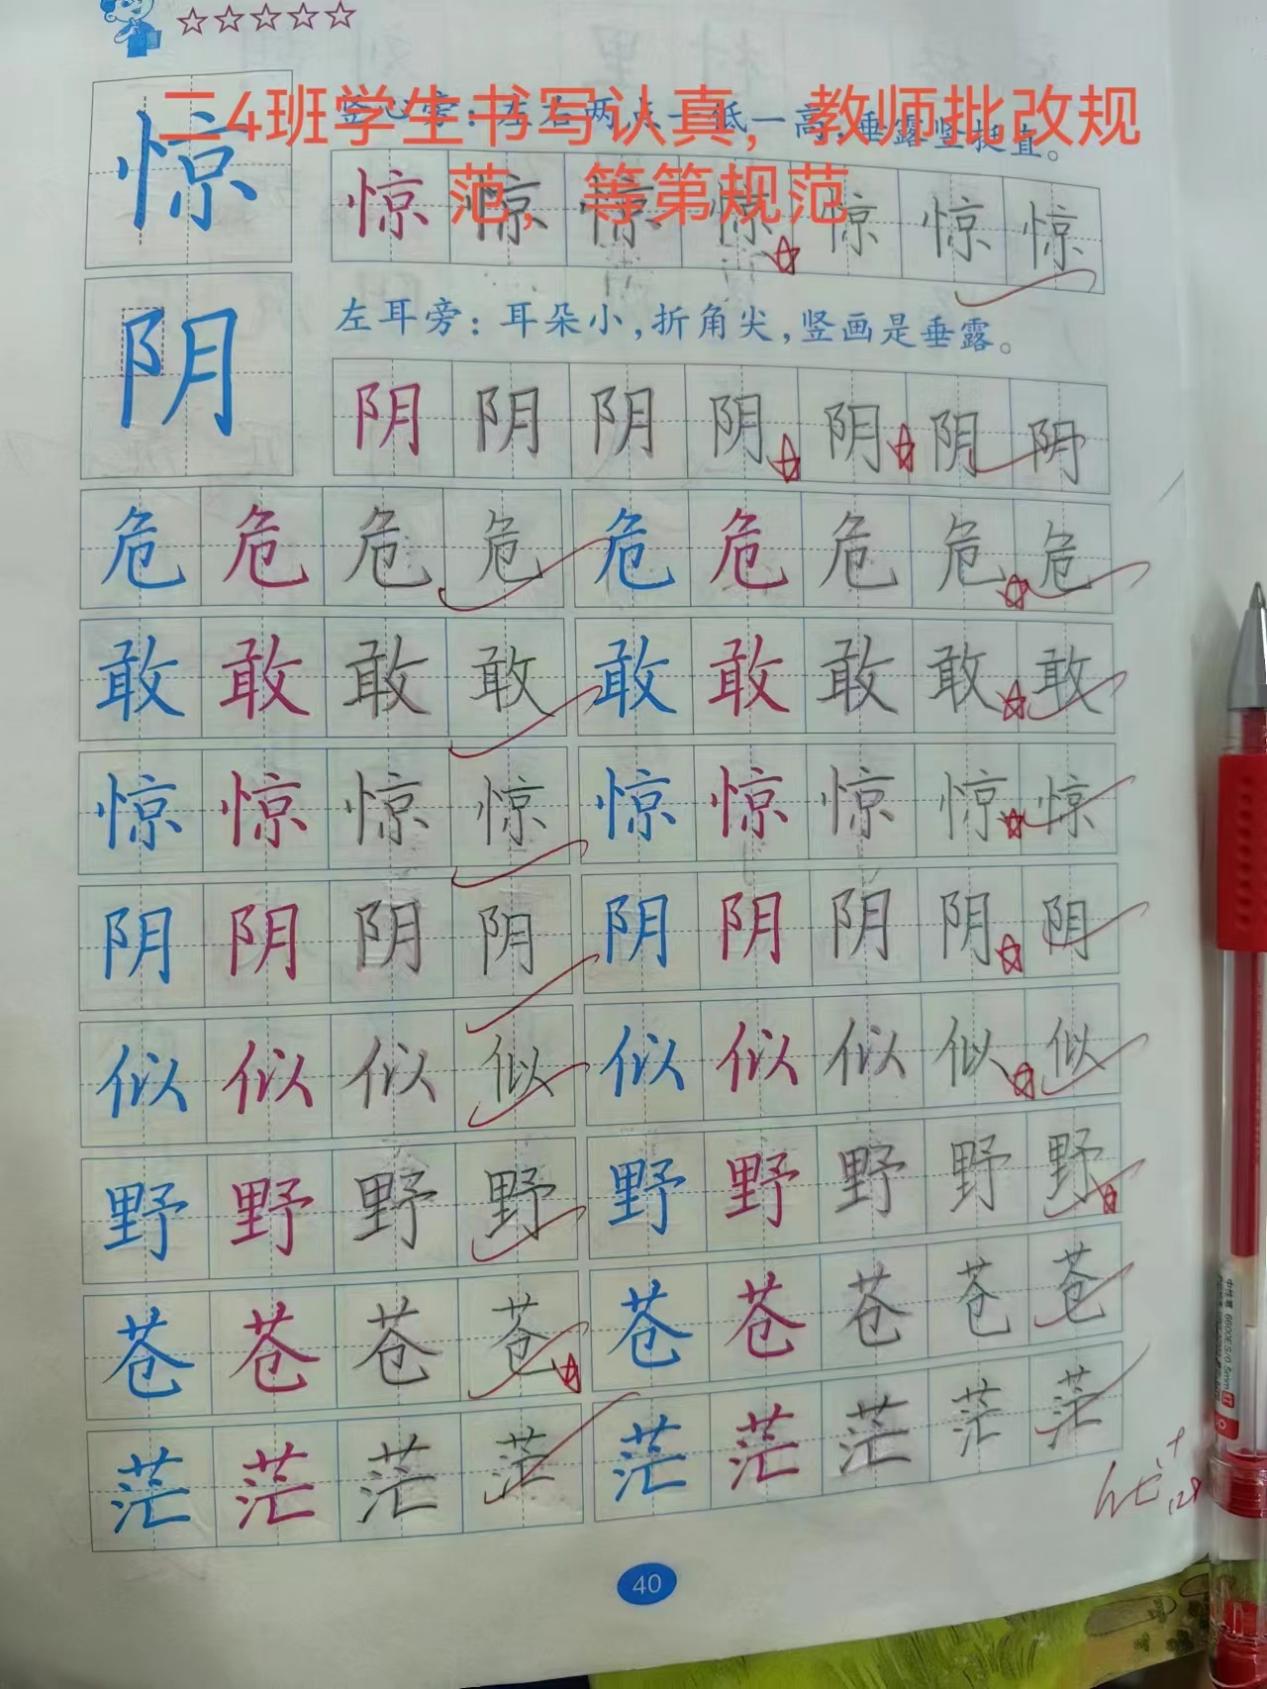 二4班学生书写认真，教师批改规
范，等第规范
惊 竖心旁：左右两点一低一高，垂露竖挺直。
惊 惊 惊 惊 惊 惊 惊
阴 左耳旁：耳朵小，折角尖，竖画是垂露。
阴 阴 阴 阴 阴 阴 阴
危 危 危 危 危 危 危 危 危
敢 敢 敢 敢 敢 敢 敢 敢 敢
惊 惊 惊 惊 惊 惊 惊 惊 惊
阴 阴 阴 阴 阴 阴 阴 阴 阴
似 似 似 似 似 似 似 似 似
野 野 野 野 野 野 野 野 野
苍 苍 苍 苍 苍 苍 苍 苍 苍
茫 茫 茫 茫 茫 茫 茫 茫 茫
40